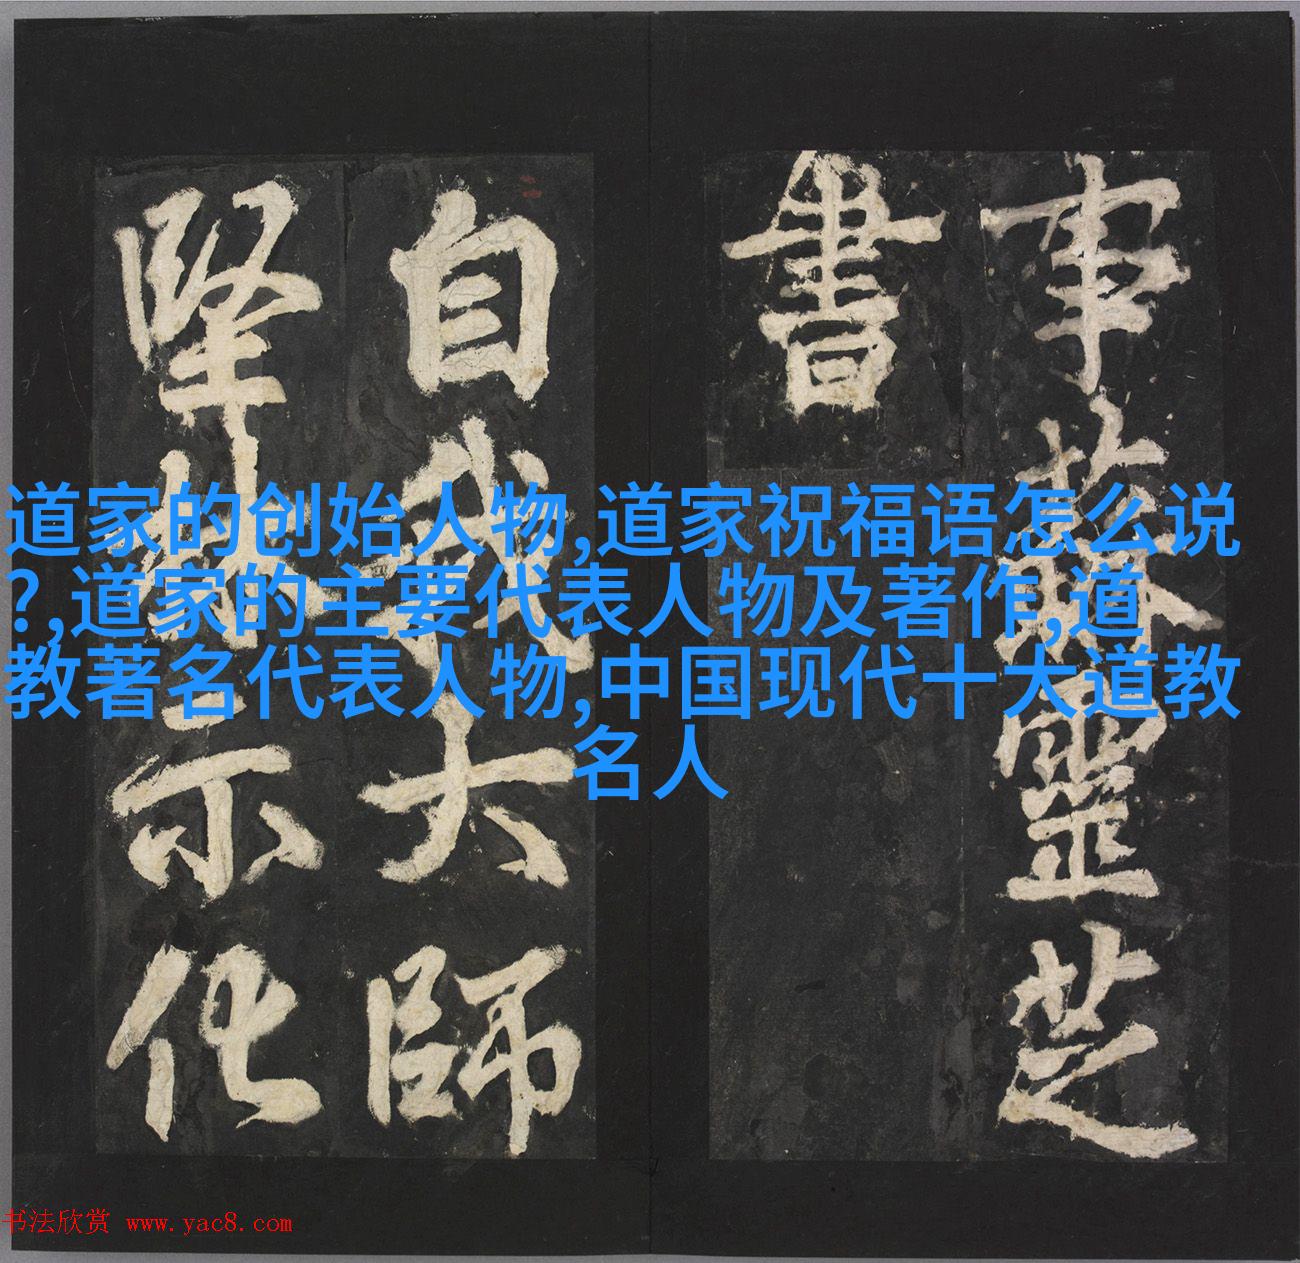 事蘇靈芝
書
自我大師
堅林示化
道家的创始人物,道家祝福语怎么说
?,道家的主要代表人物及著作,道
教著名代表人物,中国现代十大道教
名人
书法欣赏 www.yac8.com